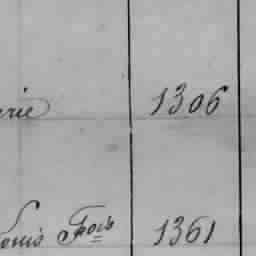 erie 1306
Louis Fois 1361